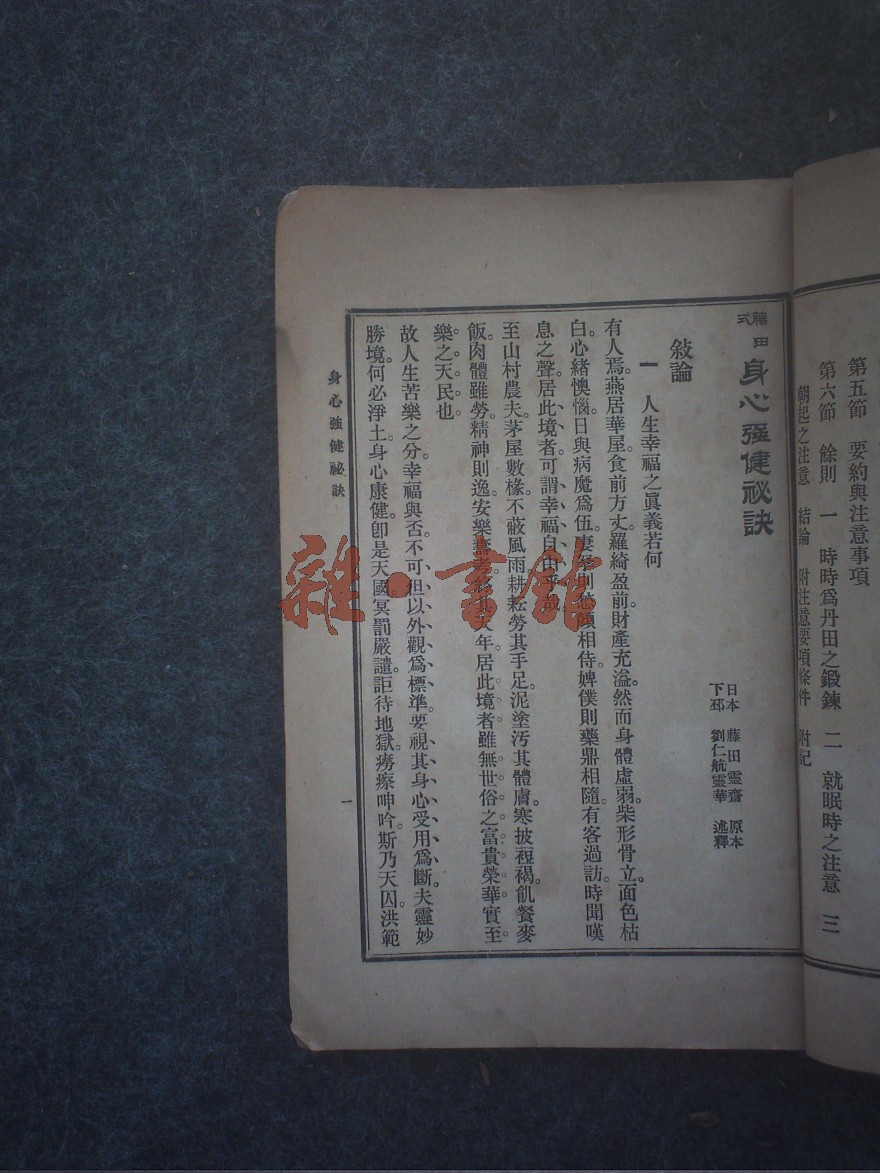 第五節　要約與注意事項
第六節　餘則　一　時時爲丹田之鍛鍊　二　就眠時之注意　三
朝起之注意　結論　附注意要項條件　附記
藤田式　身心强健祕訣
日本　藤田靈齋　原本
下邳　劉仁航靈華　述釋
敍論
一　人生幸福之眞義若何
有人焉。燕居華屋。食前方丈。羅綺盈前。財產充溢。然而身體虛弱。柴形骨立。面色枯
白。心緒懊惱。日與病魔爲伍。妻拏則愁顏相侍。婢僕則藥鼎相隨。有客過訪。時聞嘆
息之聲。居此境者。可謂幸福自由乎哉。
至山村農夫。茅屋數椽。不蔽風雨。耕耘勞其手足。泥塗污其體膚。寒披裋褐。飢餐麥
飯。肉體雖勞。精神則逸。安樂壽考。終其天年。居此境者。雖無世俗之富貴榮華。實至
樂之天民也。
故人生苦樂之分。幸福與否。不可但以外觀爲標準。要視其身心受用爲斷。夫靈妙
勝境。何必淨土。身心康健。卽是天國。冥罰嚴譴。詎待地獄。癆瘵呻吟。斯乃天囚。洪範
身心强健祕訣
一
雜·書館